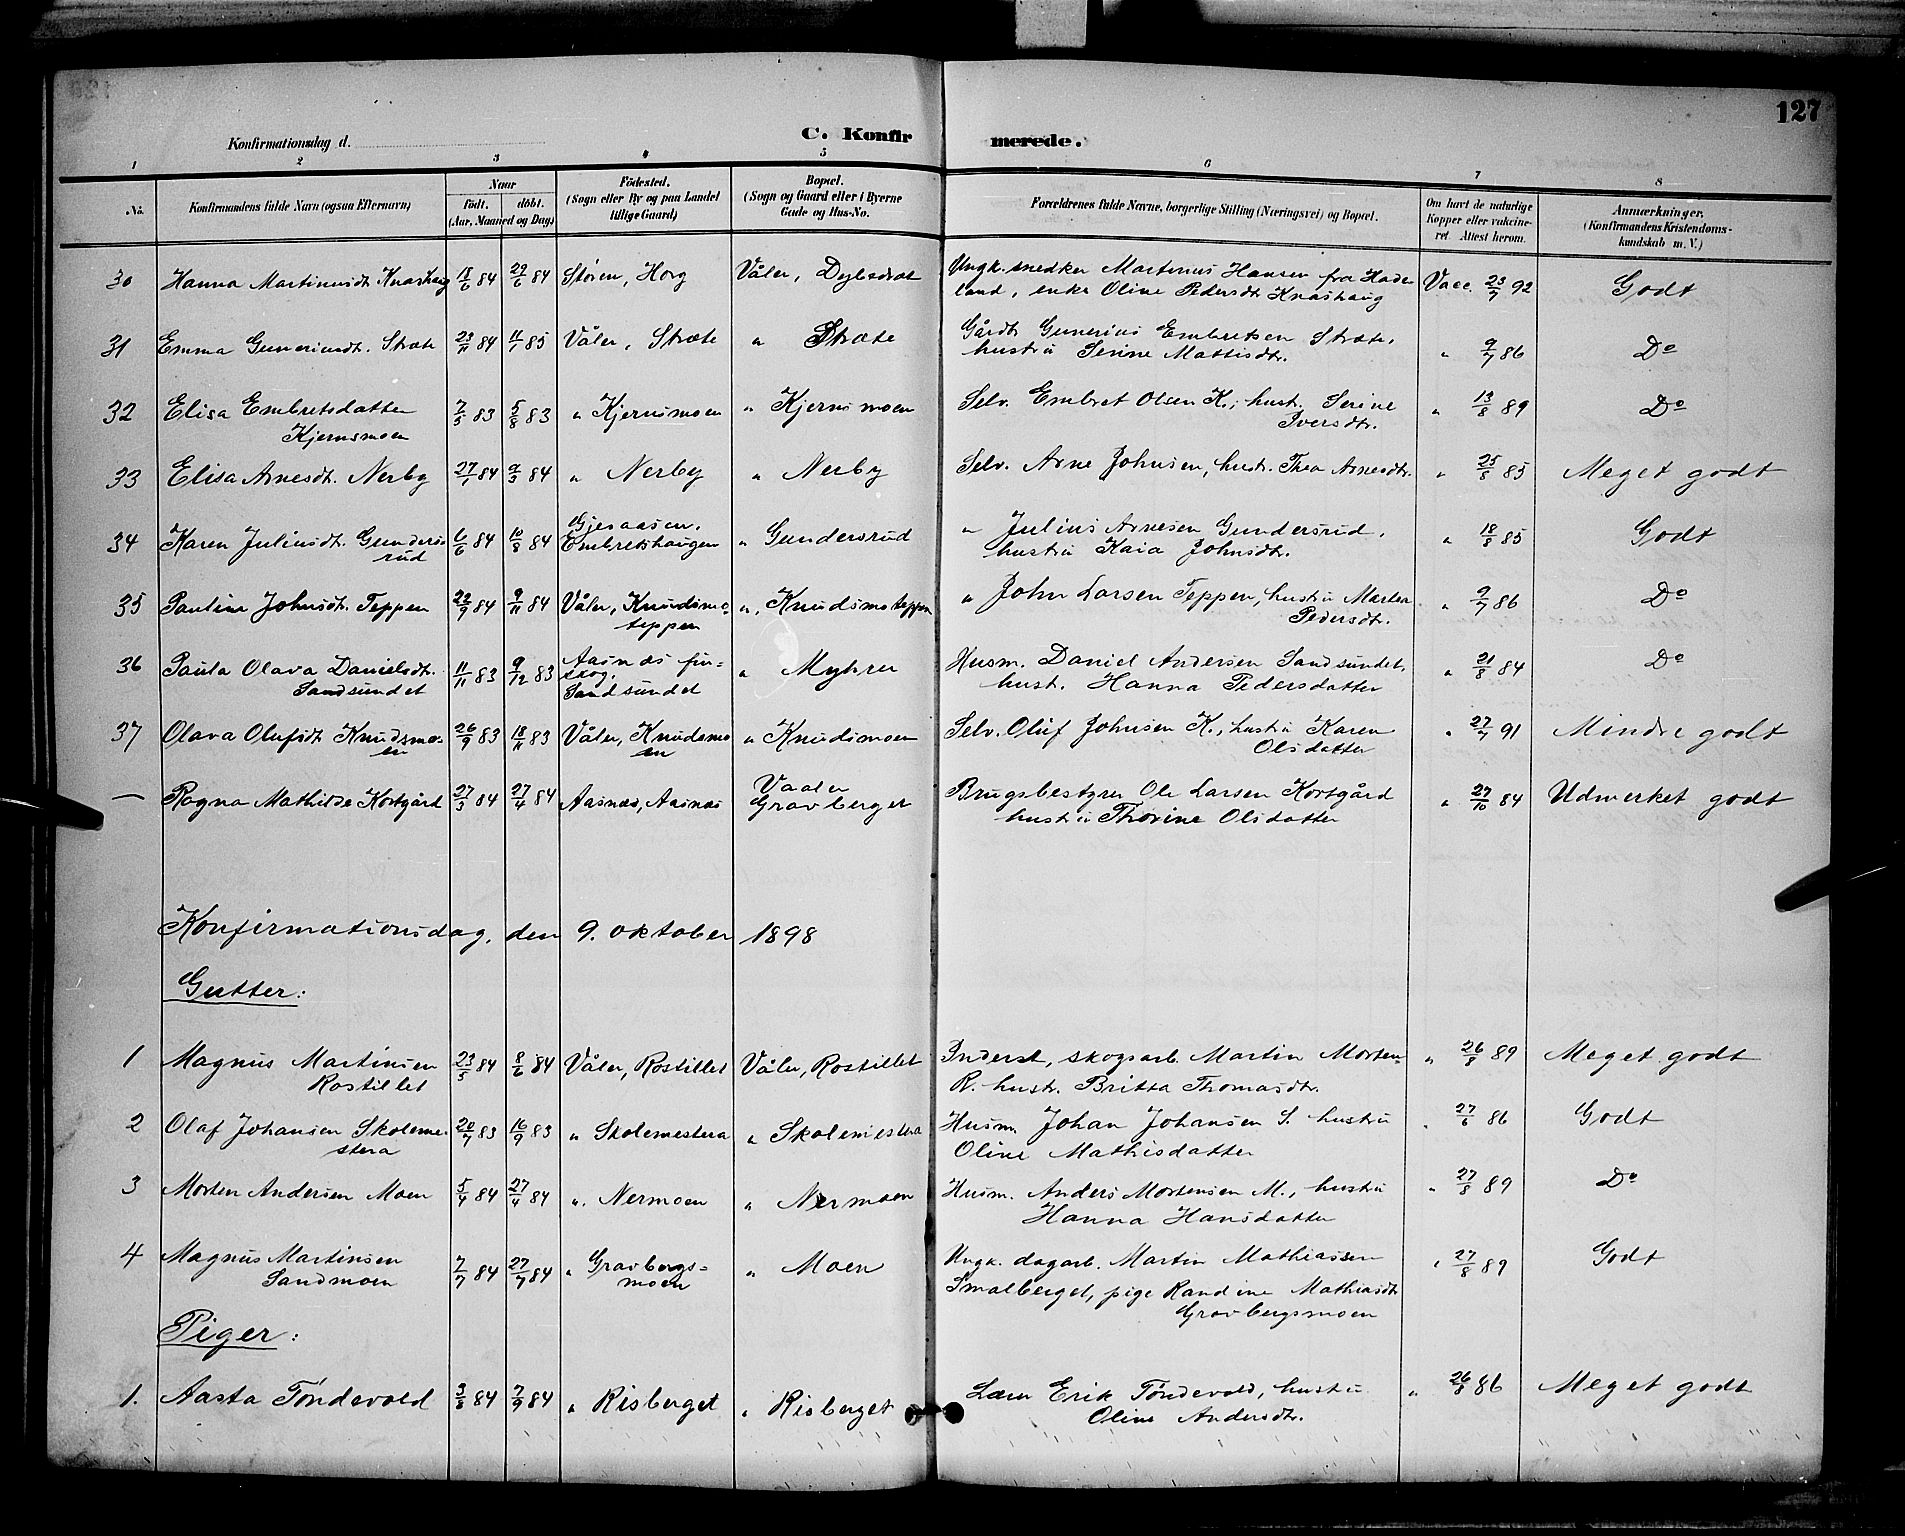 127
Konfirmationsdag d. C. Konfirmerede.
1 2 3 4 5 6 7 8
No. Konfirmandens fulde Navn (ogsaa Efternavn) Naar født. døbt. (Aar, Maaned og Dag) Fødested. (Sogn eller By og paa Landet tillige Gaard) Bopæl. (Sogn og Gaard eller i Byerne Gade og Hus-No. Forældrenes fulde Navne, borgerlige Stilling (Næringsvei) og Bopæl. Om havt de naturlige Kopper eller vakcineret. Attest herom. Anmærkninger. (Konfirmandens Kristendomskundskab m. V.)
30 Hanna Martinusdt. Knashaug 18/6 84 29/6 84 Støren, Horg Våler, Ungk. snedker Martinus Hansen fra Hade- Vacc. 23/7 92 Godt
land, enke Oline Pedersdt. Knashaug
31 Emma Guneriusdt. Stræte 23/11 84 11/1 85 Våler, Stræte " Stræte Gårdbr. Gunerius Embretsen Stræte, " 9/7 86 Do
hustru Serine Mattisdtr.
32 Elisa Embretsdatter 7/5 83 5/8 83 " Kjernsmoen " Kjernsmoen Selv. Embret Olsen K., hust. Serine " 13/8 89 Do
Kjernsmoen Iversdtr.
33 Elisa Arnesdt. Nerby 27/1 84 9/3 84 " Nerby " Nerby Selv. Arne Johnsen, hustr. Thea Arnesdtr. " 25/8 85 Meget godt
34 Karen Juliusdt. Gunders- 6/6 84 10/8 84 Gjesaasen, " Gundersrud " Julius Arnesen Gundersrud, " 18/8 85 Godt
rud Embretshaugen hustru Kaia Johnsdtr.
35 Pauline Johnsdt. Teppen 22/9 84 9/11 84 Våler, Knudsmo- " Knudsmoteppen " John Larsen Teppen, hustru Martea " 9/7 86 Do
teppen Pedersdtr.
36 Paula Olava Danielsdtr. 11/11 83 9/12 83 Aasnæs fin- " Myhrer Husm. Daniel Andersen Sandsundet, " 21/8 84 Do
Sandsundet skog, Sandsundet hust. Hanna Pedersdatter
37 Olava Olufsdt. Knudsmo- 26/9 83 18/11 83 Våler, Knudsmo " Knudsmoen Selv. Oluf Johnsen K., hustru Karen " 27/7 91 Mindre godt
en en Olsdatter
— Ragna Mathilde Kortgård 27/3 84 27/4 84 Aasnæs, Aasnæs Vaaler Gravberget Brugsbestyrer Ole Larsen Kortgård " 27/10 84 Udmerket godt
hustru Thorine Olsdatter
Konfirmationsdag, den 9. oktober 1898
Gutter:
1 Magnus Martinsen 23/5 84 8/6 84 Våler, Rostillet Våler, Rostillet Inderst, skogsarb. Martin Morten- " 26/8 89 Meget godt
Rostillet R. hustr. Britta Thomasdtr.
2 Olaf Johansen Skoleme- 20/7 83 16/9 83 " Skolemestera " Skolemestera Husm. Johan Johansen S. hustru " 27/6 86 Godt
stera Oline Mathisdatter
3 Morten Andersen Moen 5/4 84 27/4 84 " Nermoen " Nermoen Husm. Anders Mortensen M., hustru " 27/8 89 Do
Hanna Hansdatter
4 Magnus Martinsen 7/7 84 27/7 84 " Gravbergs- " Moen Ungk. dagarb. Martin Mathiassen " 27/8 89 Godt
Sandmoen moen Smalberget, pige Randine Mathiasdt.
Gravbergsmoen
Piger:
1. Aasta Tøndevold 84 7/9 84 " Risberget " Risberget Lærer Erik Tøndevold, hustru " 26/8 86 Meget godt
Oline Andersdtr.